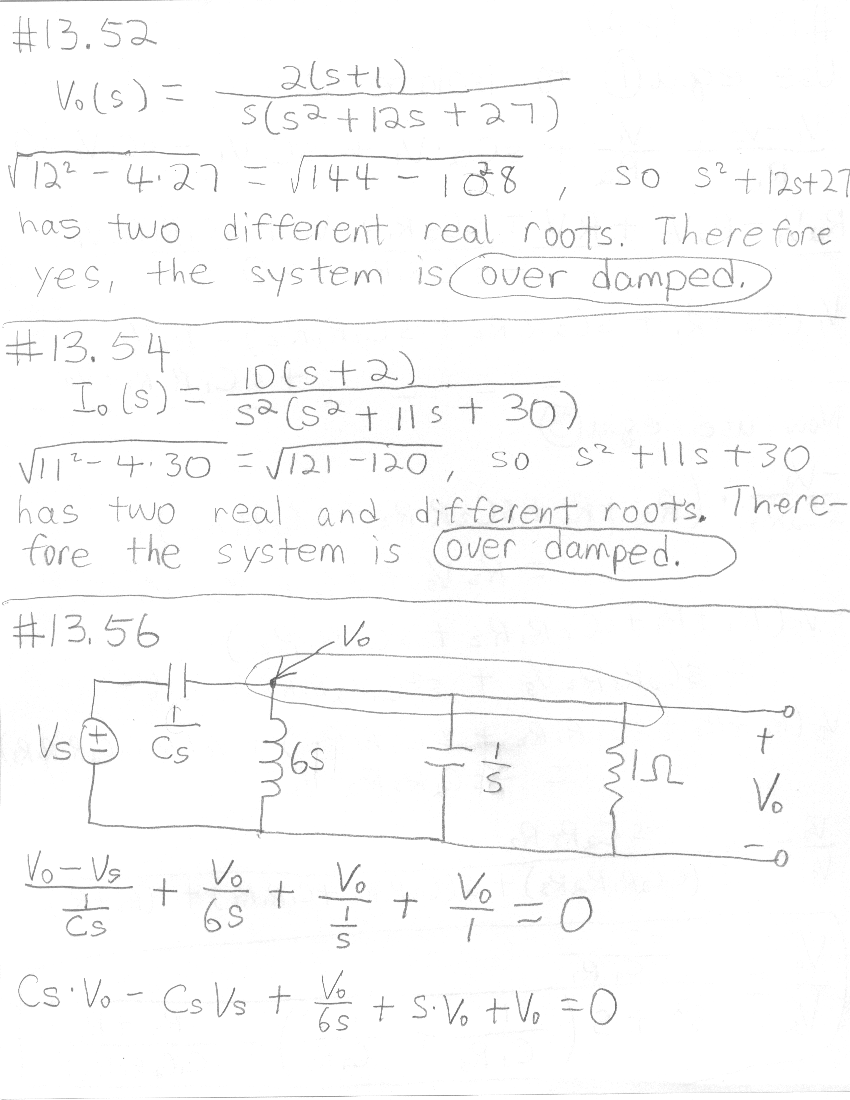 #13.52
V₀(s) = 2(s+1) / s(s²+12s+27)
√12²-4·27 = √144-108, so s²+12s+27
has two different real roots. Therefore
yes, the system is over damped.
#13.54
I₀(s) = 10(s+2) / s²(s²+11s+30)
√11²-4·30 = √121-120, so s²+11s+30
has two real and different roots. There-
fore the system is over damped.
#13.56
V₀
Vs ± 1/Cs 6s 1/s 1Ω + V₀ -
(V₀-Vs)/(1/Cs) + V₀/6s + V₀/(1/s) + V₀/1 = 0
Cs·V₀ - CsVs + V₀/6s + s·V₀ + V₀ = 0